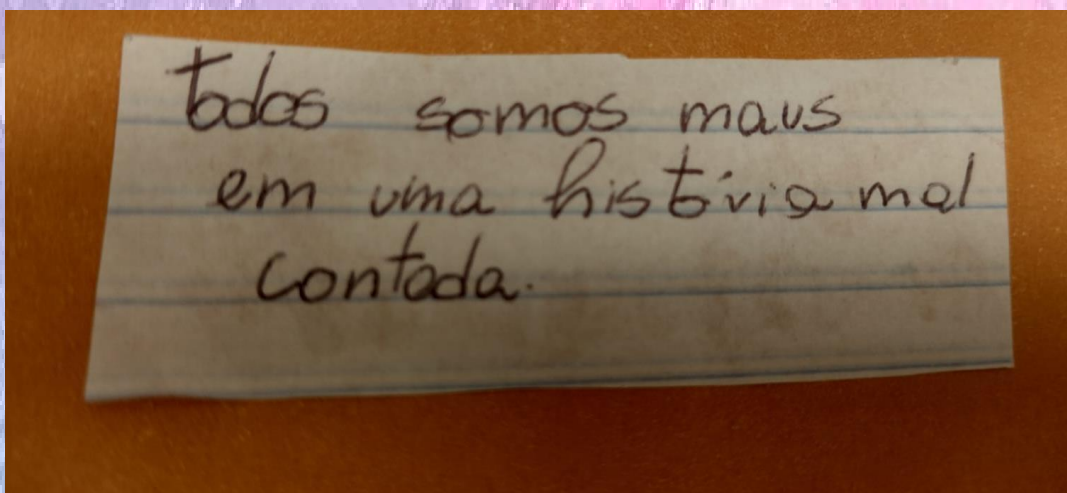 Todos somos maus
em uma história mal
contada.